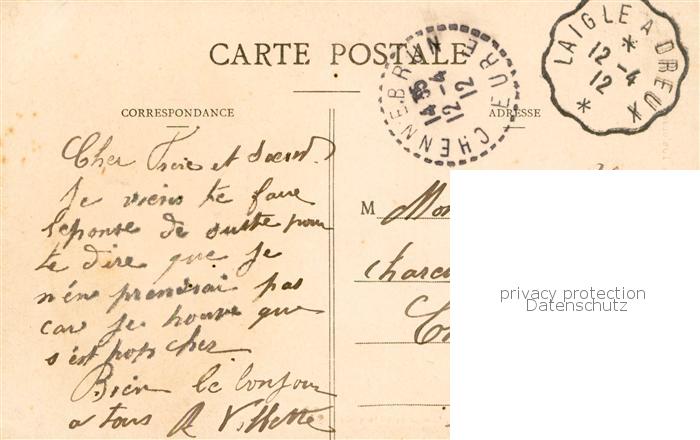 CARTE POSTALE
CHENNEBRUN
EURE
14 35
12 -4
12
LAIGLE A DREUX
*
12 -4
12
*
CORRESPONDANCE
ADRESSE
Cher Frère et Soeur.
Je viens te faire
réponse de suite pour
te dire que je
n'en prendrai pas
car je trouve que
s'est pop cher
Bien le bonjour
a tous R Villette
M Mon
Charcu
privacy protection
Datenschutz